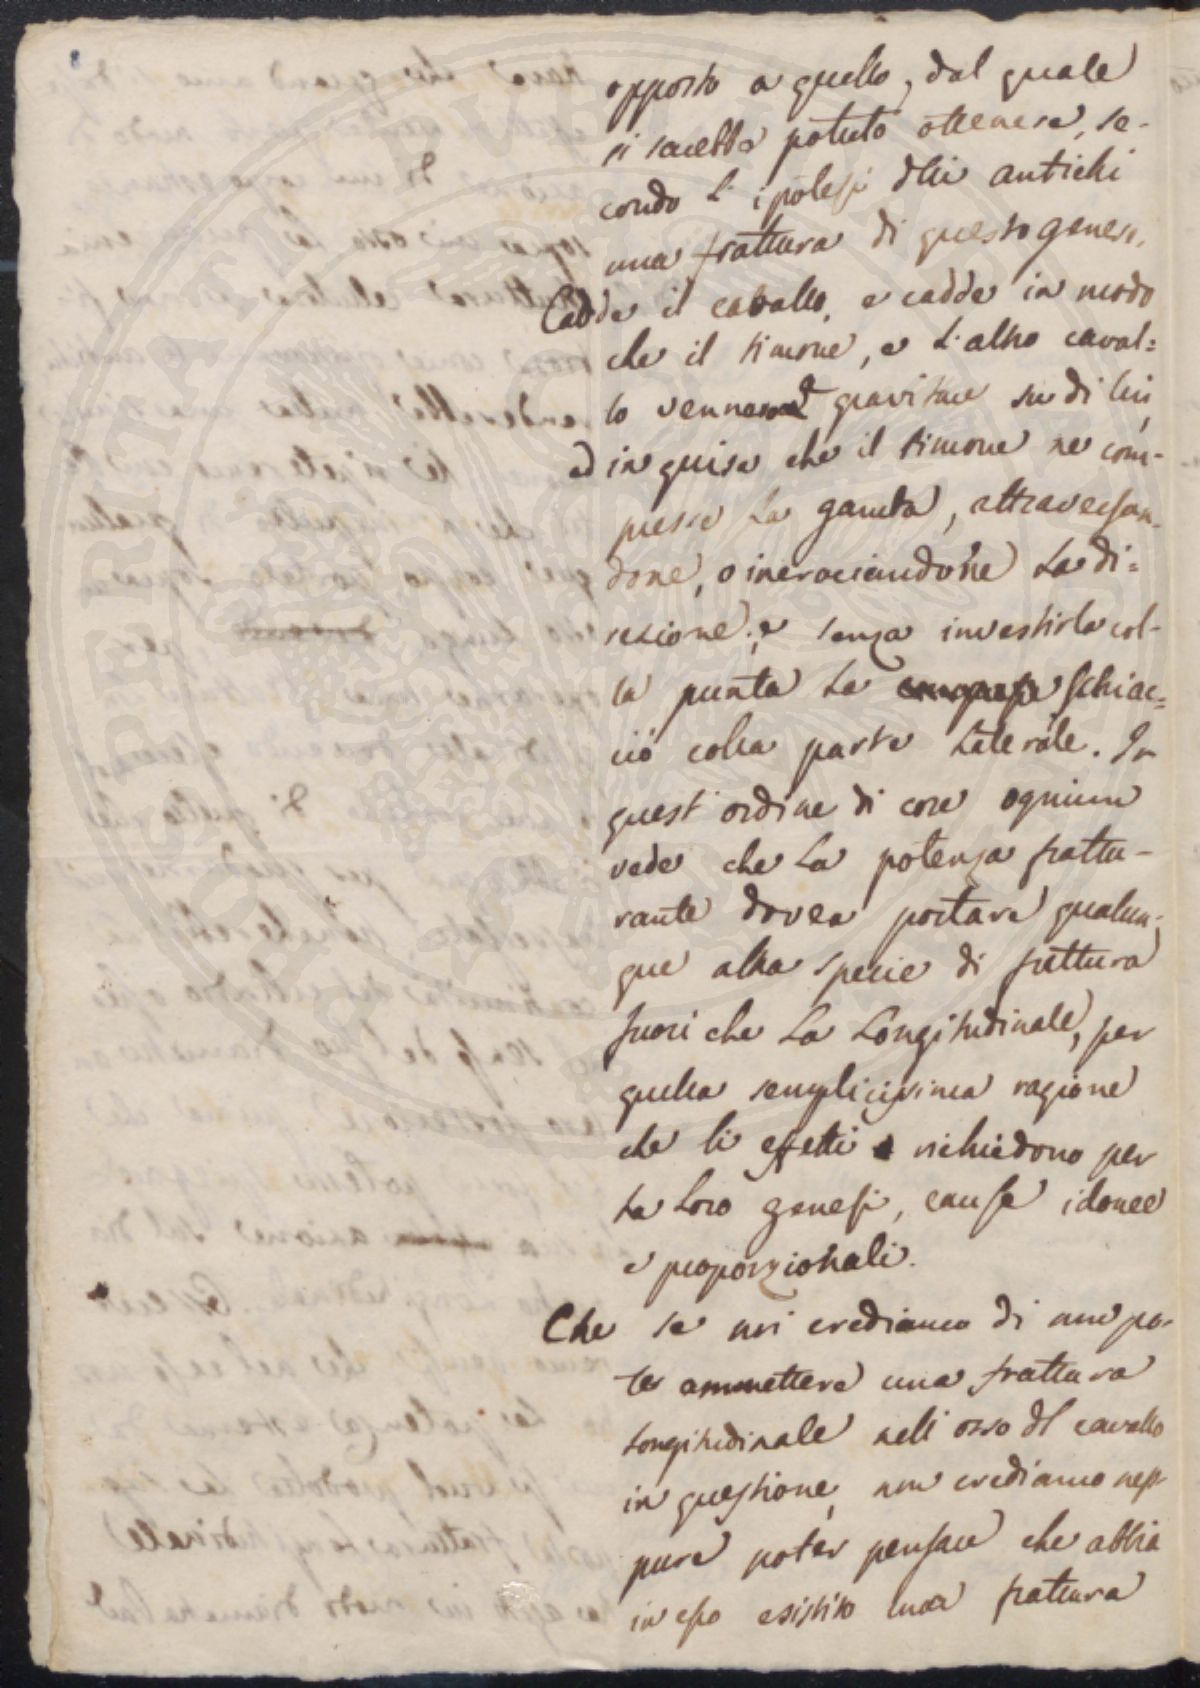 8
opposto a quello, dal quale
si sarebbe potuto ottenere, se-
condo l'ipotesi dlli antichi
una frattura di questo genere.
Cadde il cavallo, e cadde in modo
che il timone, e l'altro caval=
lo venne a gravitare su di lui,
ed in guisa che il timone ne com-
presse la gamba, attraversan-
done, o incrociandone la di=
rezione; e senza investirla col-
la punta la schiac=
ciò colla parte laterale. In
quest'ordine di cose ognuno
vede che la potenza frattu-
rante dovea portare qualun-
que altra specie di frattura
fuori che la longitudinale, per
quella semplicissima ragione
che li effetti richiedono per
la loro genesi, cause idonee
e proporzionali.
Che se noi crediamo di non po-
ter ammettere una frattura
longitudinale nell'osso dl cavallo
in questione, non crediamo nep-
pure poter pensare che abbia
in esso esistito una frattura